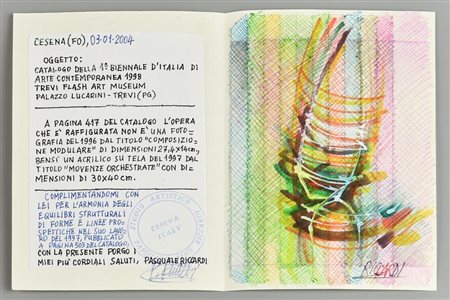 CESENA (FO), 03-01-2004
OGGETTO:
CATALOGO DELLA 1ª BIENNALE D'ITALIA DI
ARTE CONTEMPORANEA 1998
TREVI FLASH ART MUSEUM
PALAZZO LUCARINI - TREVI (PG)
A PAGINA 417 DEL CATALOGO L'OPERA
CHE È RAFFIGURATA NON È UNA FOTO=
GRAFIA DEL 1996 DAL TITOLO "COMPOSIZIO=
NE MODULARE" DI DIMENSIONI 27,4x14cm,
BENSÌ UN ACRILICO SU TELA DEL 1997 DAL
TITOLO "MOVENZE ORCHESTRATE" CON DI=
MENSIONI DI 30x40cm.
COMPLIMENTANDOMI CON
LEI PER L'ARMONIA DEGLI
EQUILIBRI STRUTTURALI
DI FORME E LINEE PRO=
SPETTICHE NEL SUO LAVO=
RO DEL 1997, PUBBLICATO
A PAGINA 503 DEL CATALOGO,
CON LA PRESENTE PORGO I
MIEI PIÙ CORDIALI SALUTI, PASQUALE RICCARDI
STUDIO ARTISTICO
CESENA
ITALY
RICCARDI